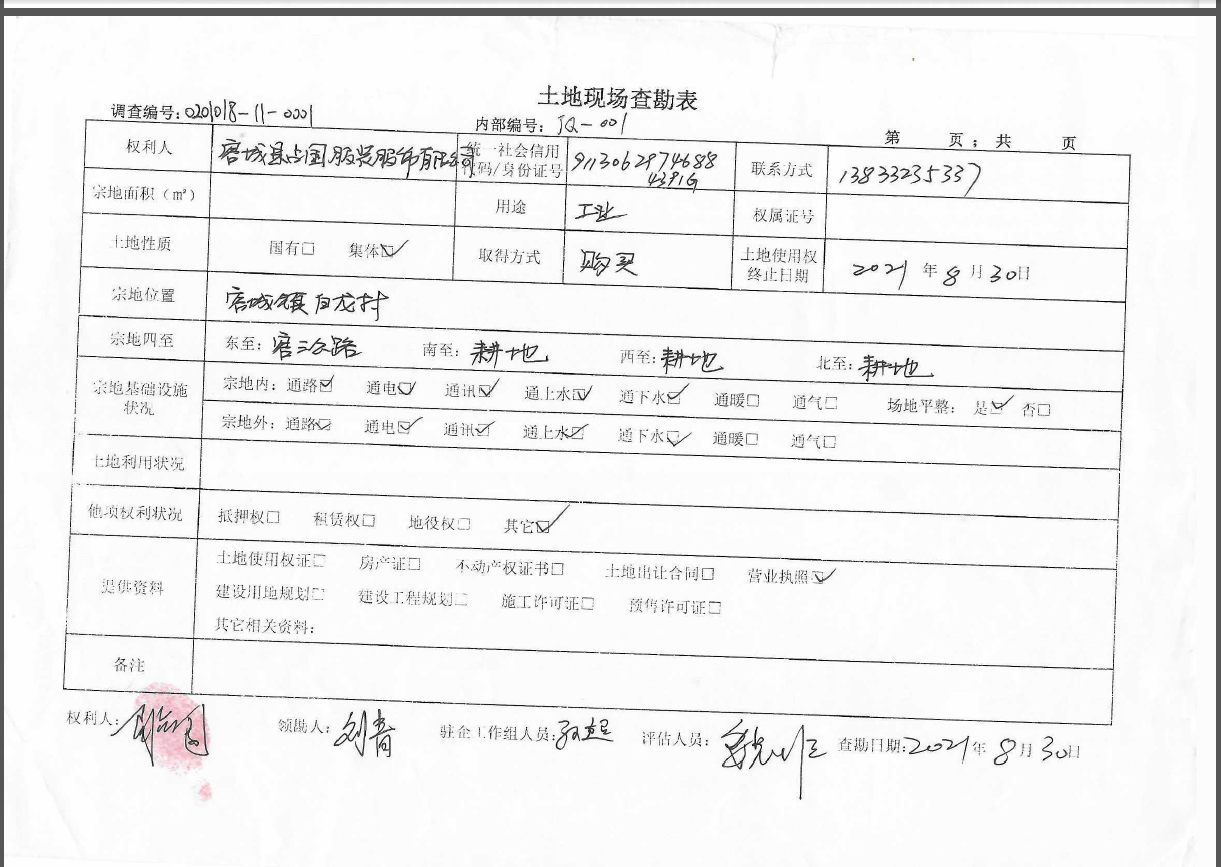 土地现场查勘表
调查编号:0201018-11-0001 内部编号: JQ-001 第 页; 共 页
权利人 容城县占国服装服饰有限公司 统一社会信用代码/身份证号 91130629746884391G 联系方式 13833235337
宗地面积(㎡) 用途 工业 权属证号
土地性质 国有□ 集体☑ 取得方式 购买 土地使用权终止日期 2021年8月30日
宗地位置 容城镇白龙村
宗地四至 东至: 容三公路 南至: 耕地 西至: 耕地 北至: 耕地
宗地基础设施状况 宗地内: 通路☑ 通电☑ 通讯☑ 通上水☑ 通下水☑ 通暖□ 通气□ 场地平整: 是☑ 否□
宗地外: 通路☑ 通电☑ 通讯☑ 通上水☑ 通下水☑ 通暖□ 通气□
土地利用状况
他项权利状况 抵押权□ 租赁权□ 地役权□ 其它☑
提供资料 土地使用权证□ 房产证□ 不动产权证书□ 土地出让合同□ 营业执照☑
建设用地规划□ 建设工程规划□ 施工许可证□ 预售许可证□
其它相关资料:
备注
权利人: 领勘人: 刘青 驻企工作组人员: 评估人员: 查勘日期:2021年8月30日